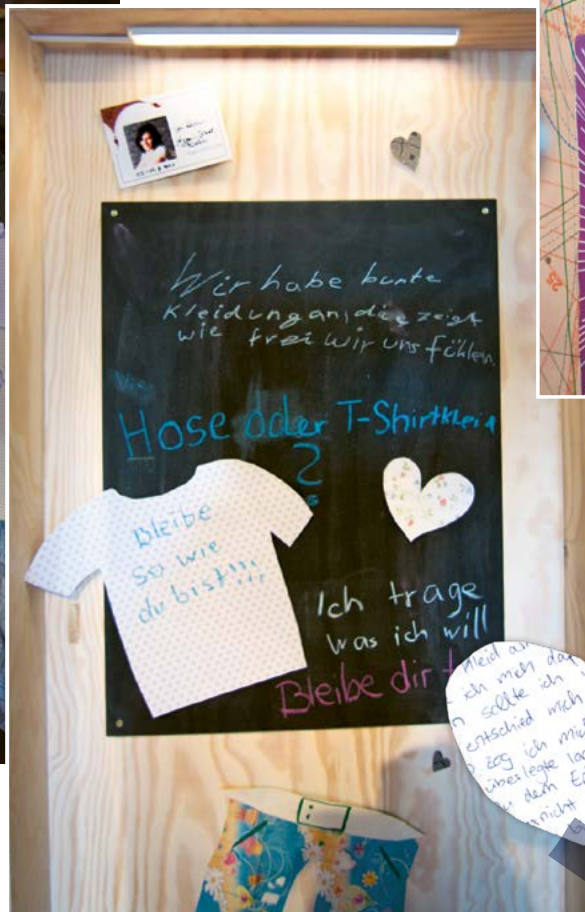 Wir habe bunte
Kleidung an, die zeigt
wie frei wir uns fühlen.
Hose oder T-Shirtkleid
?
Bleibe
so wie
du bist!!!
Ich trage
was ich will
Bleibe dir
Kleid
ich mich
sollte ich
entschied mich
zog ich mich
überlegte
dem
nicht
25